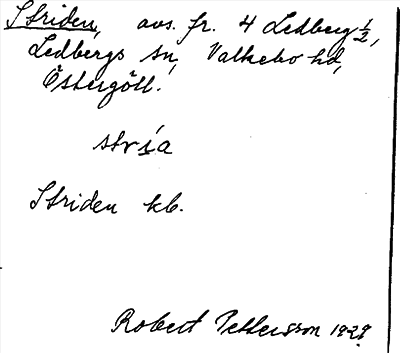 Striden, avs. fr. 4 Ledberg 1/2,
Ledbergs sn, Valkebo hd,
Östergötl.
stri̱a
Striden kb.
Robert Pettersson 1929